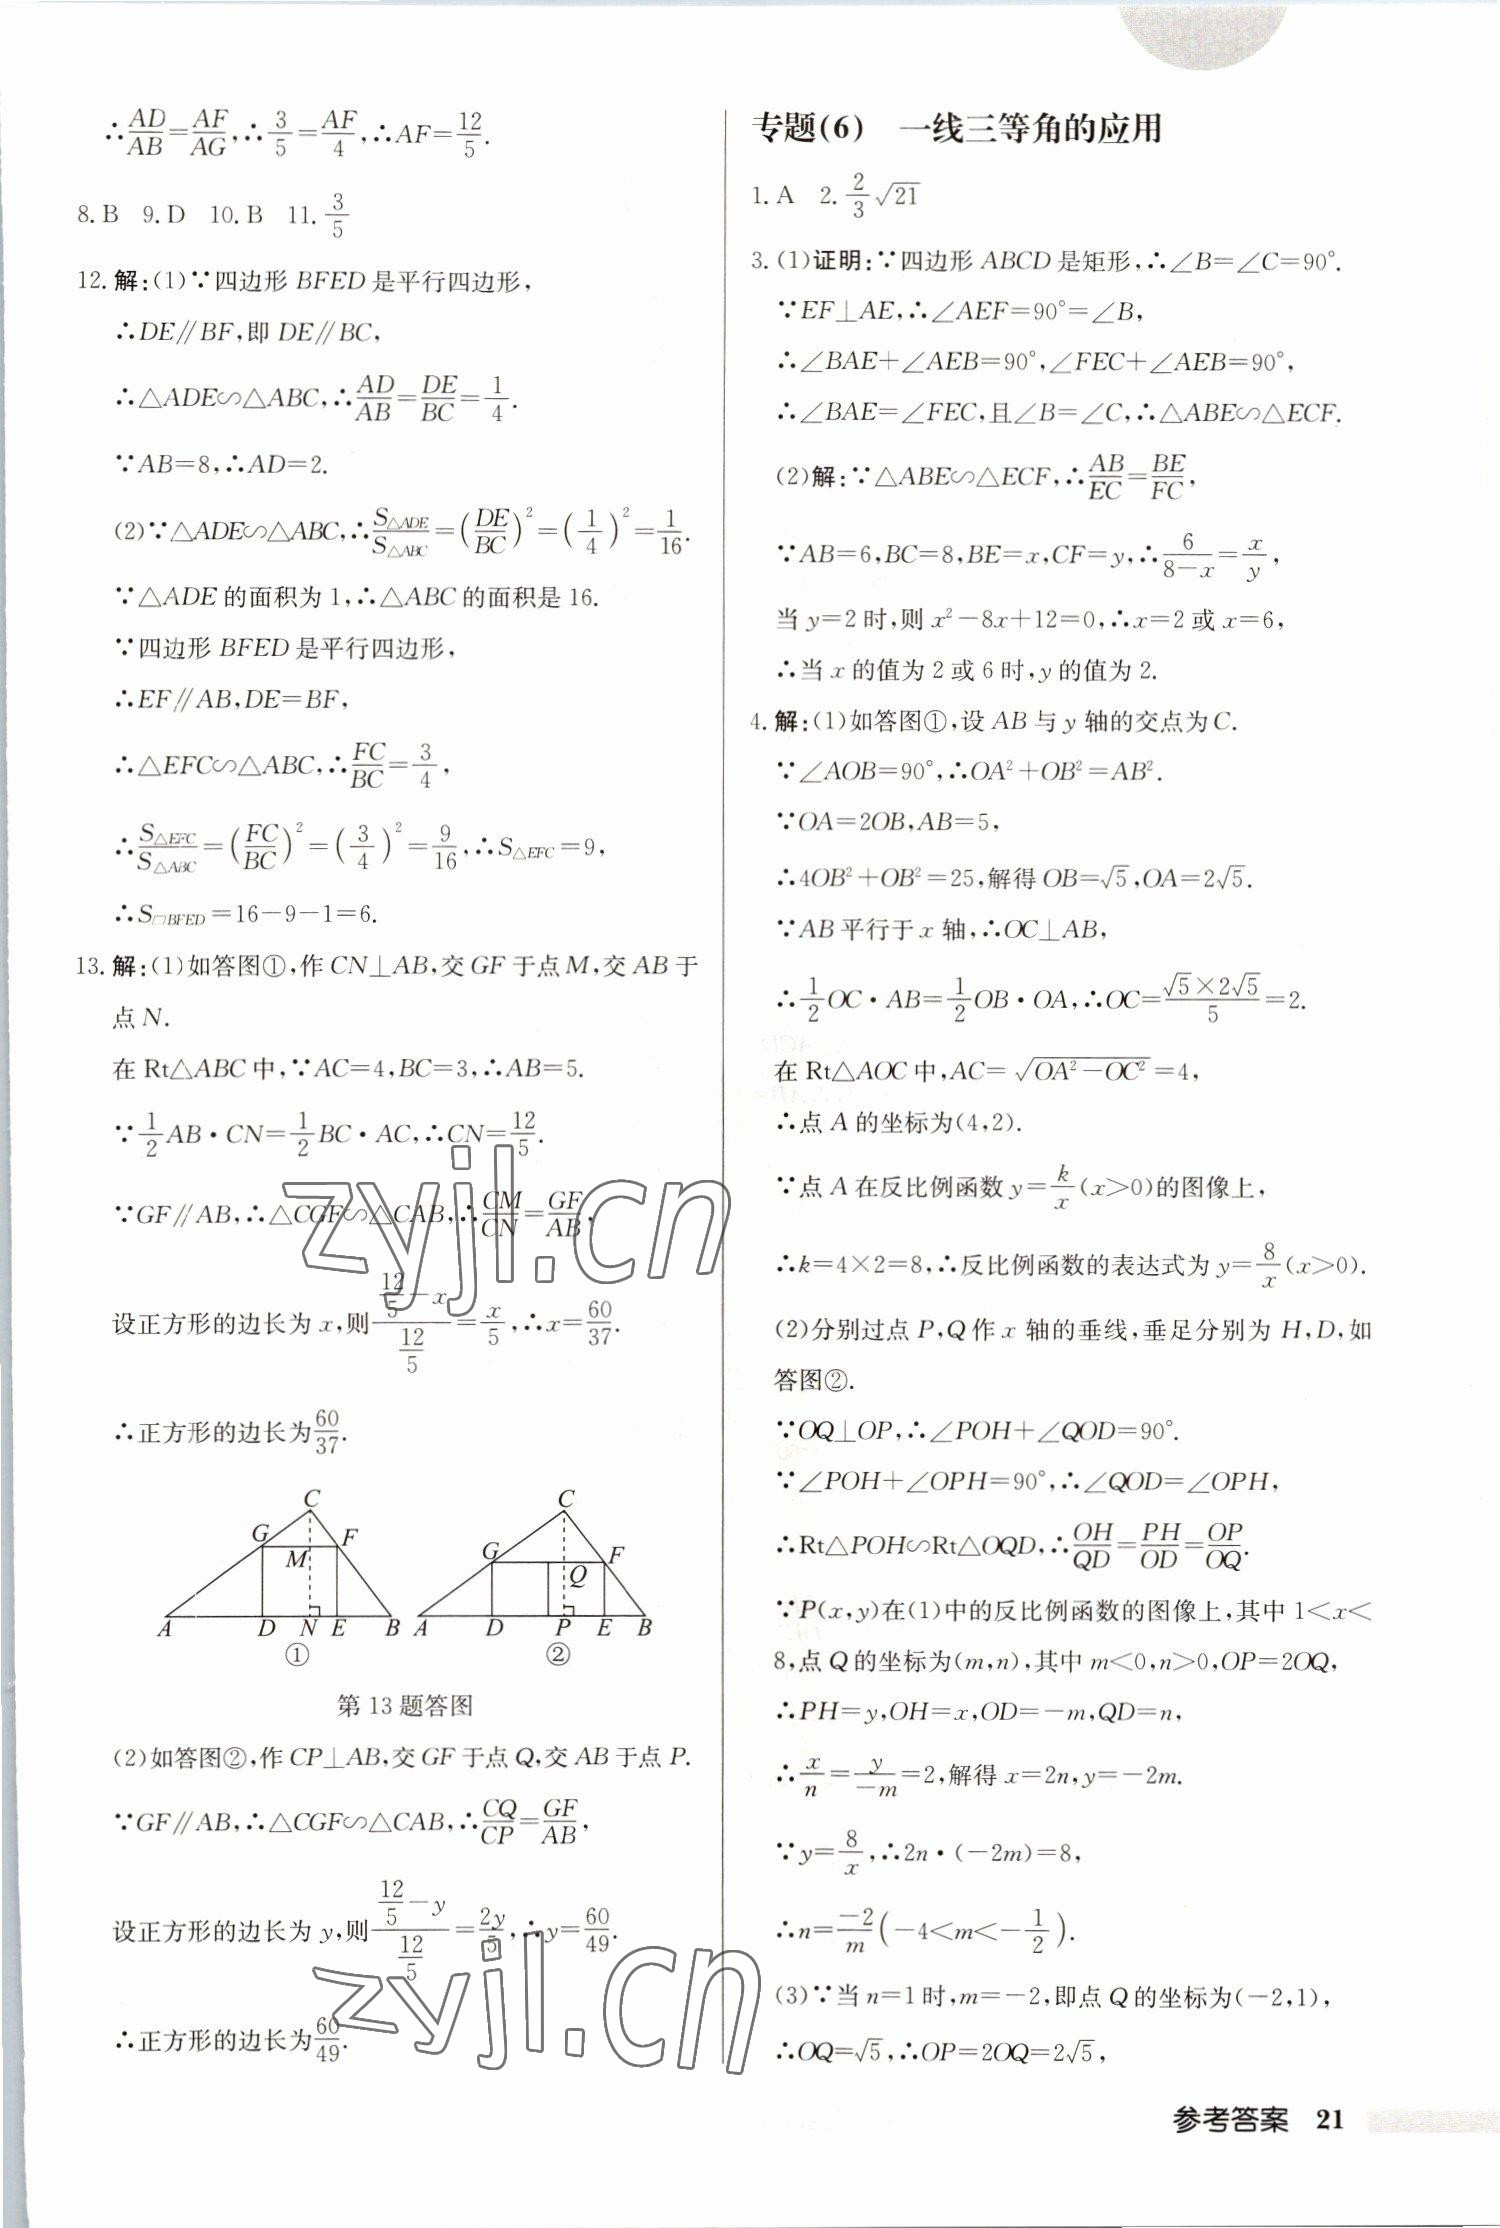 ∴AD/AB=AF/AG,∴3/5=AF/4,∴AF=12/5.
8.B 9.D 10.B 11.3/5
12.解:(1)∵四边形 BFED 是平行四边形,
∴DE∥BF,即 DE∥BC,
∴△ADE∽△ABC,∴AD/AB=DE/BC=1/4.
∵AB=8,∴AD=2.
(2)∵△ADE∽△ABC,∴S△ADE/S△ABC=(DE/BC)²=(1/4)²=1/16.
∵△ADE 的面积为 1,∴△ABC 的面积是 16.
∵四边形 BFED 是平行四边形,
∴EF∥AB,DE=BF,
∴△EFC∽△ABC,∴FC/BC=3/4,
∴S△EFC/S△ABC=(FC/BC)²=(3/4)²=9/16,∴S△EFC=9,
∴S▱BFED=16-9-1=6.
13.解:(1)如答图①,作 CN⊥AB,交 GF 于点 M,交 AB 于
点 N.
在 Rt△ABC 中,∵AC=4,BC=3,∴AB=5.
∵1/2AB·CN=1/2BC·AC,∴CN=12/5.
∵GF∥AB,∴△CGF∽△CAB,∴CM/CN=GF/AB,
设正方形的边长为 x,则(12/5-x)/(12/5)=x/5,∴x=60/37.
∴正方形的边长为60/37.
C G F M A D N E B ①
C G F Q A D P E B ②
第 13 题答图
(2)如答图②,作 CP⊥AB,交 GF 于点 Q,交 AB 于点 P.
∵GF∥AB,∴△CGF∽△CAB,∴CQ/CP=GF/AB,
设正方形的边长为 y,则(12/5-y)/(12/5)=2y/5,∴y=60/49.
∴正方形的边长为60/49.
专题(6) 一线三等角的应用
1.A 2.2/3√21
3.(1)证明:∵四边形 ABCD 是矩形,∴∠B=∠C=90°.
∵EF⊥AE,∴∠AEF=90°=∠B,
∴∠BAE+∠AEB=90°,∠FEC+∠AEB=90°,
∴∠BAE=∠FEC,且∠B=∠C,∴△ABE∽△ECF.
(2)解:∵△ABE∽△ECF,∴AB/EC=BE/FC,
∵AB=6,BC=8,BE=x,CF=y,∴6/(8-x)=x/y,
当 y=2 时,则 x²-8x+12=0,∴x=2 或 x=6,
∴当 x 的值为 2 或 6 时,y 的值为 2.
4.解:(1)如答图①,设 AB 与 y 轴的交点为 C.
∵∠AOB=90°,∴OA²+OB²=AB².
∵OA=2OB,AB=5,
∴4OB²+OB²=25,解得 OB=√5,OA=2√5.
∵AB 平行于 x 轴,∴OC⊥AB,
∴1/2OC·AB=1/2OB·OA,∴OC=(√5×2√5)/5=2.
在 Rt△AOC 中,AC=√(OA²-OC²)=4,
∴点 A 的坐标为(4,2).
∵点 A 在反比例函数 y=k/x(x>0)的图像上,
∴k=4×2=8,∴反比例函数的表达式为 y=8/x(x>0).
(2)分别过点 P,Q 作 x 轴的垂线,垂足分别为 H,D,如
答图②.
∵OQ⊥OP,∴∠POH+∠QOD=90°.
∵∠POH+∠OPH=90°,∴∠QOD=∠OPH,
∴Rt△POH∽Rt△OQD,∴OH/QD=PH/OD=OP/OQ.
∵P(x,y)在(1)中的反比例函数的图像上,其中 1<x<
8,点 Q 的坐标为(m,n),其中 m<0,n>0,OP=2OQ,
∴PH=y,OH=x,OD=-m,QD=n,
∴x/n=y/-m=2,解得 x=2n,y=-2m.
∵y=8/x,∴2n·(-2m)=8,
∴n=-2/m(-4<m<-1/2).
(3)∵当 n=1 时,m=-2,即点 Q 的坐标为(-2,1),
∴OQ=√5,∴OP=2OQ=2√5,
参考答案 21
zyjl.cn
zyjl.cn